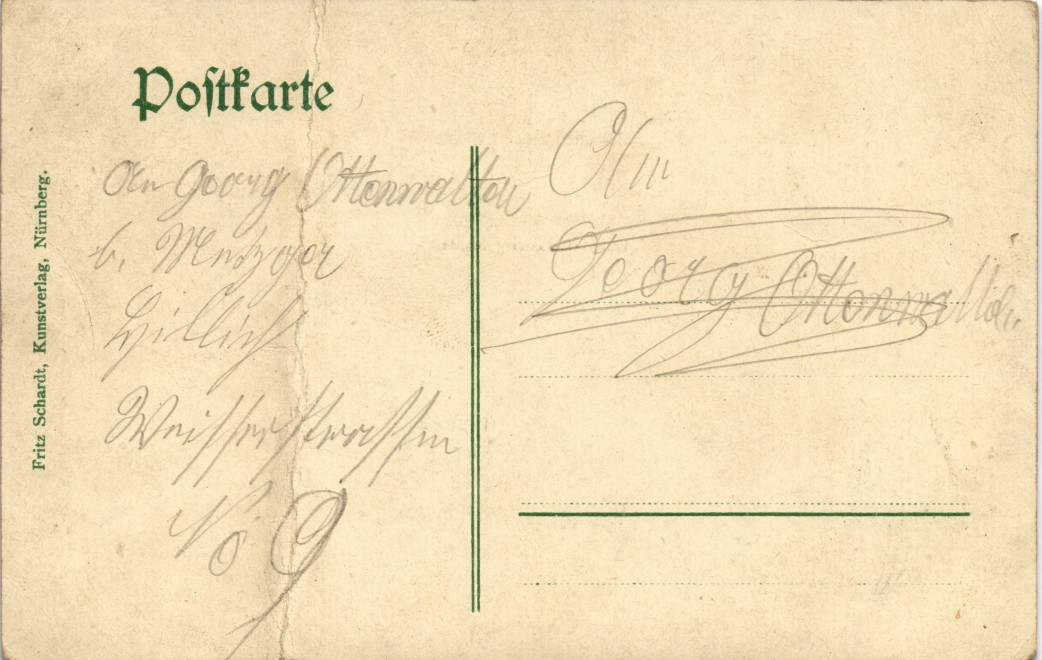 Postkarte
Fritz Schardt, Kunstverlag, Nürnberg.
An Georg Ottenwalter
b. Metzger
Weisserstrassin
No 9
An
Georg Ottenwalter